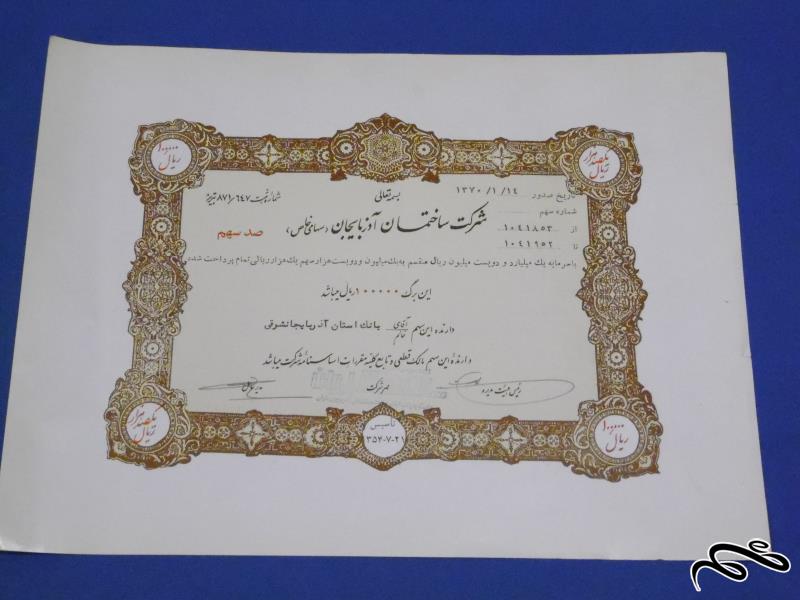 ۱۰۰۰۰۰ ریال
یکصد هزار ریال
بسمه تعالی
تاریخ صدور ۱۳۷۰/۱/۱۴
شماره ثبت ۸۷۱/۶۴۷ تبریز
شماره سهم
شرکت ساختمان آذربایجان (سهامی خاص)
صد سهم
از ۱۰۴۱۸۵۳
تا ۱۰۴۱۹۵۲
با سرمایه یک میلیارد و دویست میلیون ریال منقسم به یک میلیون و دویست هزار سهم یک هزار ریالی تمام پرداخت شده
این برگ ۱۰۰۰۰۰ ریال میباشد
دارنده این سهم آقای خانم بانک استان آذربایجانشرقی
دارندهٔ این سهم مالک قطعی و تابع کلیه مقررات اساسنامه شرکت میباشد
رئیس هیئت مدیره
مهر شرکت
مدیر عامل
یکصد هزار ریال
تأسیس
۱۳۵۴-۷-۲۱
۱۰۰۰۰۰ ریال